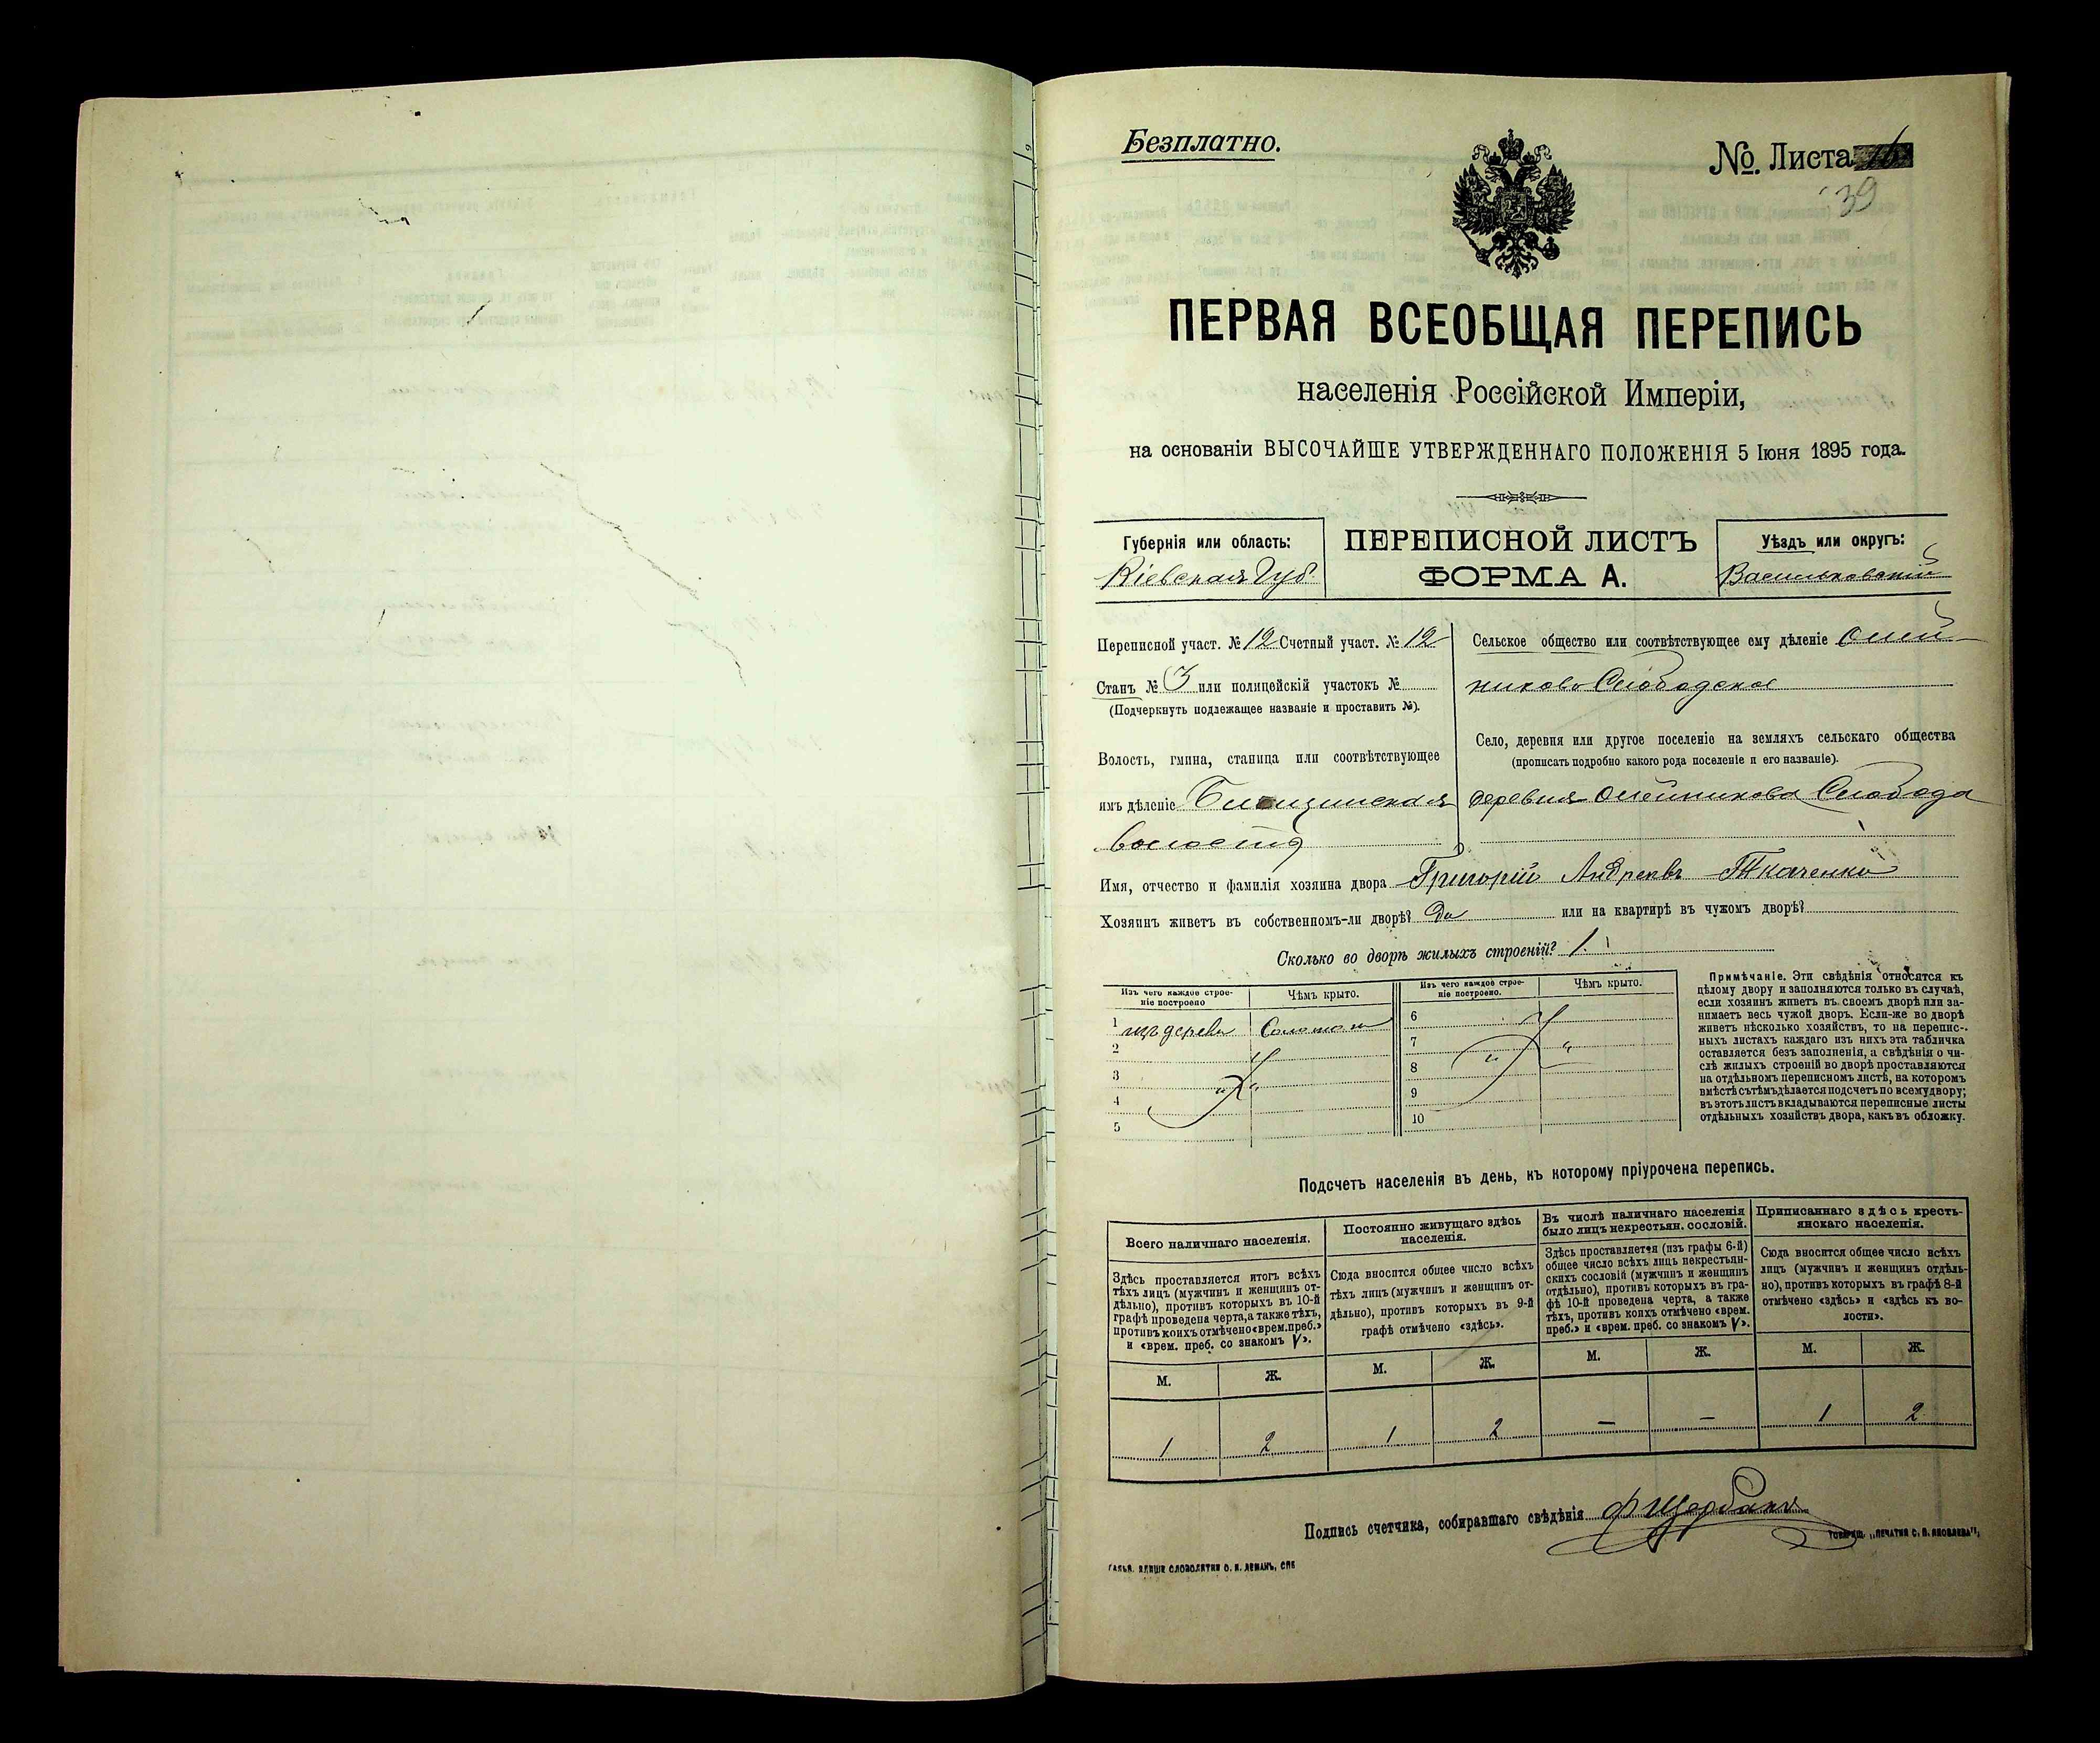 Безплатно.
№ Листа
39
ПЕРВАЯ ВСЕОБЩАЯ ПЕРЕПИСЬ
населенія Россійской Имперіи,
на основаніи ВЫСОЧАЙШЕ УТВЕРЖДЕННАГО ПОЛОЖЕНІЯ 5 Іюня 1895 года.
Губернія или область:
Кіевская Губ.
ПЕРЕПИСНОЙ ЛИСТЪ
ФОРМА А.
Уѣздъ или округъ:
Васильковскій
Переписной участ. № 12 Счетный участ. № 12
Станъ № 3 или полицейскій участокъ №
(Подчеркнуть подлежащее названіе и проставить №).
Волость, гмина, станица или соотвѣтствующее
имъ дѣленіе
волость
Сельское общество или соотвѣтствующее ему дѣленіе Олей-
никово Слободское
Село, деревня или другое поселеніе на земляхъ сельскаго общества
(прописать подробно какого рода поселеніе и его названіе).
деревня Олейникова Слобода
Имя, отчество и фамилія хозяина двора Григорій Андреевъ Ткаченко
Хозяинъ живетъ въ собственномъ-ли дворѣ? Да или на квартирѣ въ чужомъ дворѣ?
Сколько во дворѣ жилыхъ строеній? 1.
Изъ чего каждое строе-
ніе построено
Чѣмъ крыто.
Изъ чего каждое строе-
ніе построено.
Чѣмъ крыто.
1 изъ дерева Соломой
2
3
4
5
6
7
8
9
10
Примѣчаніе. Эти свѣдѣнія относятся къ
цѣлому двору и заполняются только въ случаѣ,
если хозяинъ живетъ въ своемъ дворѣ или за-
нимаетъ весь чужой дворъ. Если-же во дворѣ
живетъ нѣсколько хозяйствъ, то на перепис-
ныхъ листахъ каждаго изъ нихъ эта табличка
оставляется безъ заполненія, а свѣдѣнія о чи-
слѣ жилыхъ строеній во дворѣ проставляются
на отдѣльномъ переписномъ листѣ, на которомъ
вмѣстѣ съ тѣмъ дѣлается подсчетъ по всему двору;
въ этотъ листъ вкладываются переписные листы
отдѣльныхъ хозяйствъ двора, какъ въ обложку.
Подсчетъ населенія въ день, къ которому пріурочена перепись.
Всего наличнаго населенія.
Здѣсь проставляется итогъ всѣхъ
тѣхъ лицъ (мужчинъ и женщинъ от-
дѣльно), противъ которыхъ въ 10-й
графѣ проведена черта, а также тѣхъ,
противъ коихъ отмѣчено «врем. преб.»
и «врем. преб. со знакомъ V».
Постоянно живущаго здѣсь
населенія.
Сюда вносится общее число всѣхъ
тѣхъ лицъ (мужчинъ и женщинъ от-
дѣльно), противъ которыхъ въ 9-й
графѣ отмѣчено «здѣсь».
Въ числѣ наличнаго населенія
было лицъ некрестьян. сословій.
Здѣсь проставляется (изъ графы 6-й)
общее число всѣхъ лицъ некрестьян-
скихъ сословій (мужчинъ и женщинъ
отдѣльно), противъ которыхъ въ гра-
фѣ 10-й проведена черта, а также
тѣхъ, противъ коихъ отмѣчено «врем.
преб.» и «врем. преб. со знакомъ V».
Приписаннаго здѣсь кресть-
янскаго населенія.
Сюда вносится общее число всѣхъ
лицъ (мужчинъ и женщинъ отдѣль-
но), противъ которыхъ въ графѣ 8-й
отмѣчено «здѣсь» и «здѣсь въ во-
лости».
М. Ж. М. Ж. М. Ж. М. Ж.
1 2 1 2 – – 1 2
Подпись счетчика, собиравшаго свѣдѣнія
Товарищ. „Печатня С. П. Яковлева",
СЛОВОЛИТНИ О. И. ЛЕМАНЪ, СПБ